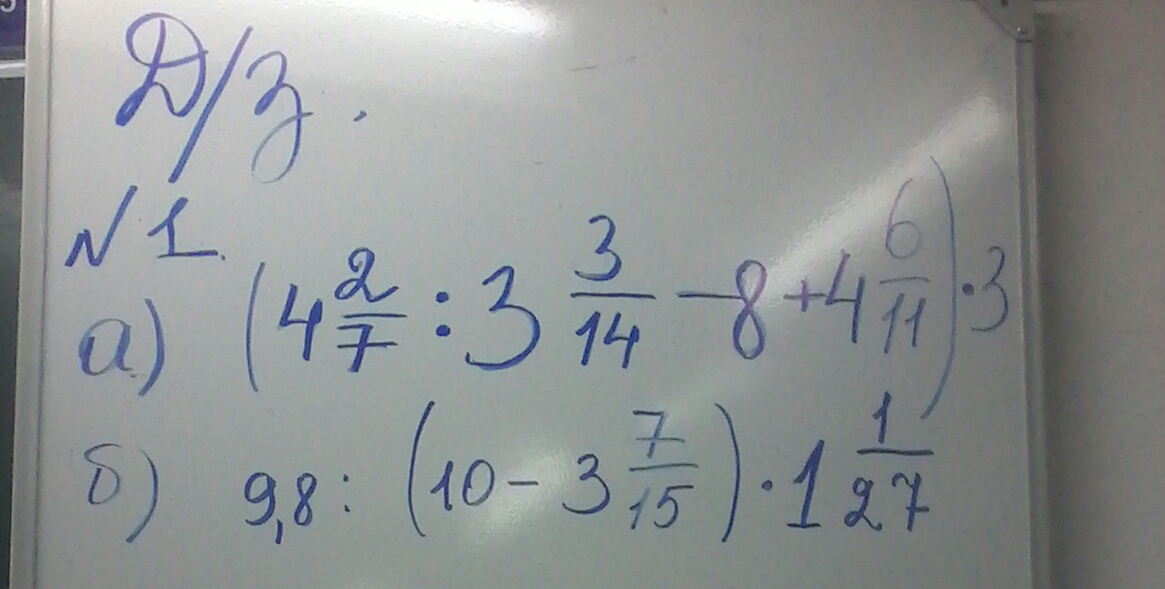 Д/з.
№1.
а) (4 2/7 : 3 3/14 − 8 + 4 6/11) · 3
б) 9,8 : (10 − 3 7/15) · 1 1/27